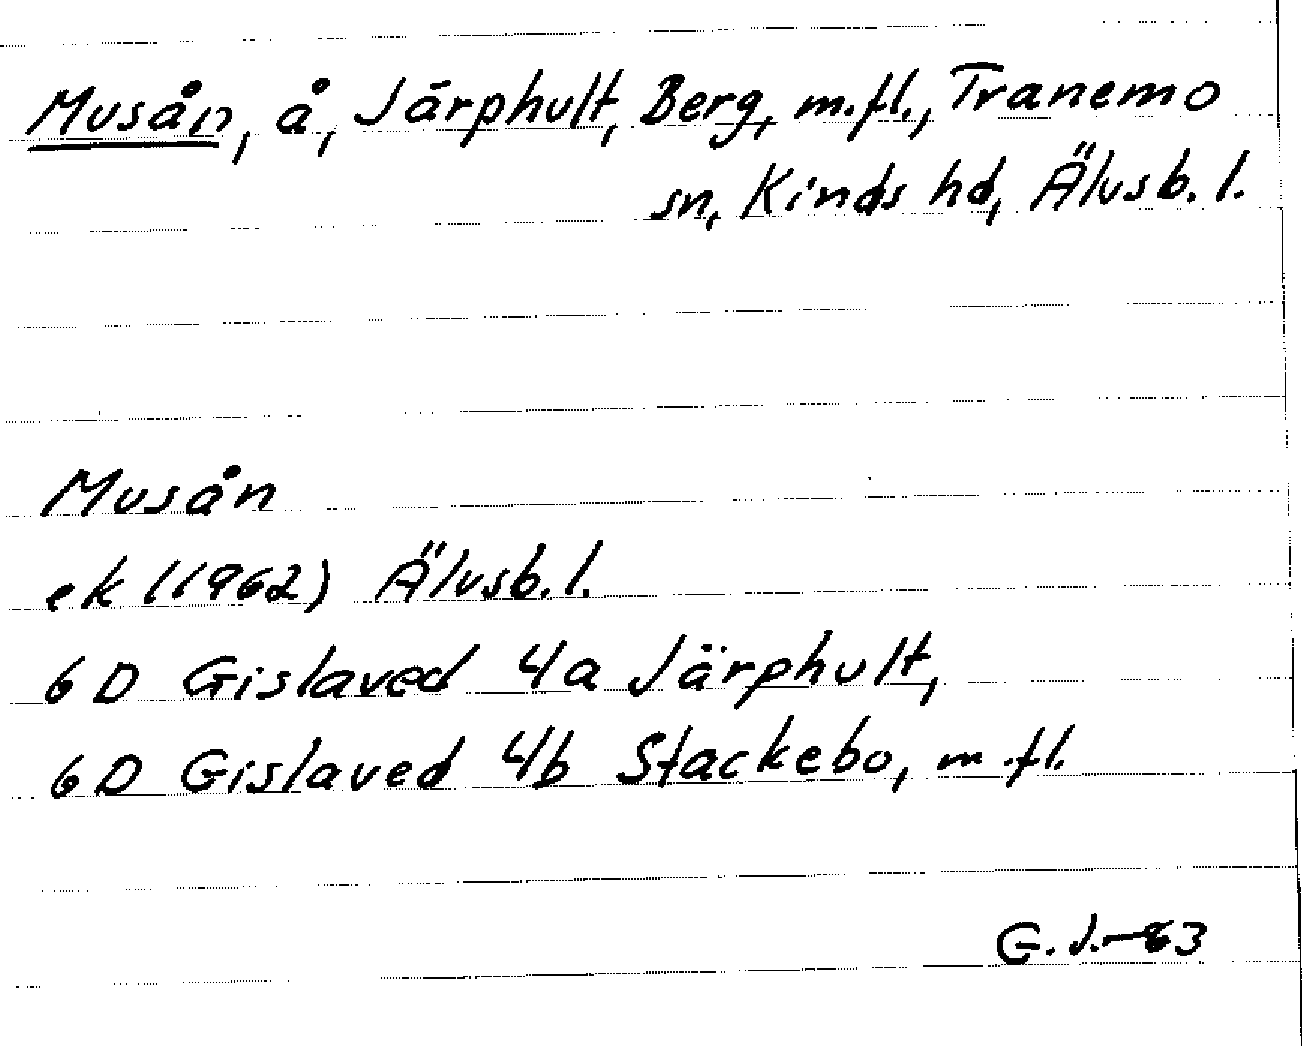 Musån, å, Järphult, Berg, m.fl., Tranemo
sn, Kinds hd, Älvsb. l.
Musån
ek (1962) Älvsb. l.
6D Gislaved 4a Järphult,
6D Gislaved 4b Stackebo, m.fl.
G. J. -83